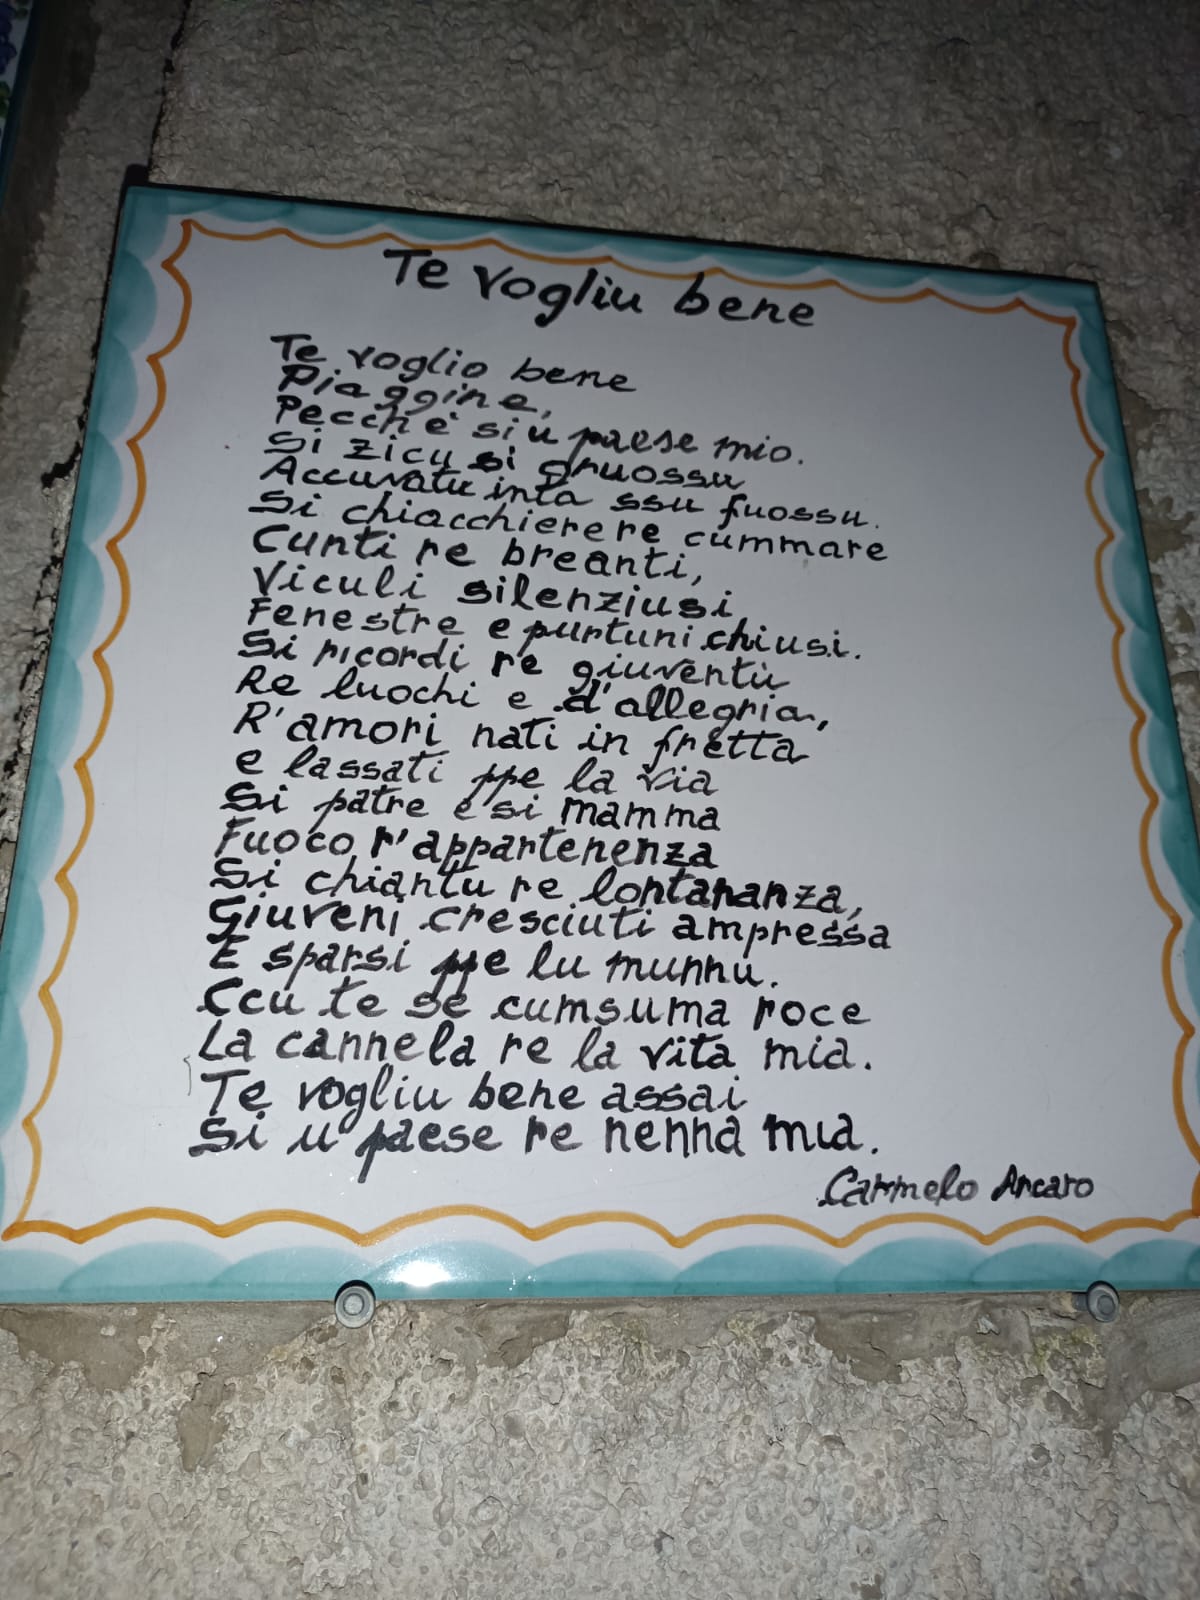 Te vogliu bene
Te voglio bene
Piaggine,
Pecchè si u paese mio.
Si zicu si gruossu
Accuvatu inta ssu fuossu.
Si chiacchiere re cummare
Cunti re breanti,
Viculi silenziusi
Fenestre e purtuni chiusi.
Si ricordi re giuventù
Re luochi e d'allegria,
R'amori nati in fretta
e lassati ppe la via
Si patre e si mamma
Fuoco r'appartenenza
Si chiantu re lontananza,
Giuveni cresciuti ampressa
E sparsi ppe lu munnu.
Ccu te se cumsuma roce
La cannela re la vita mia.
Te vogliu bene assai
Si u paese re nenna mia.
Carmelo Arcaro